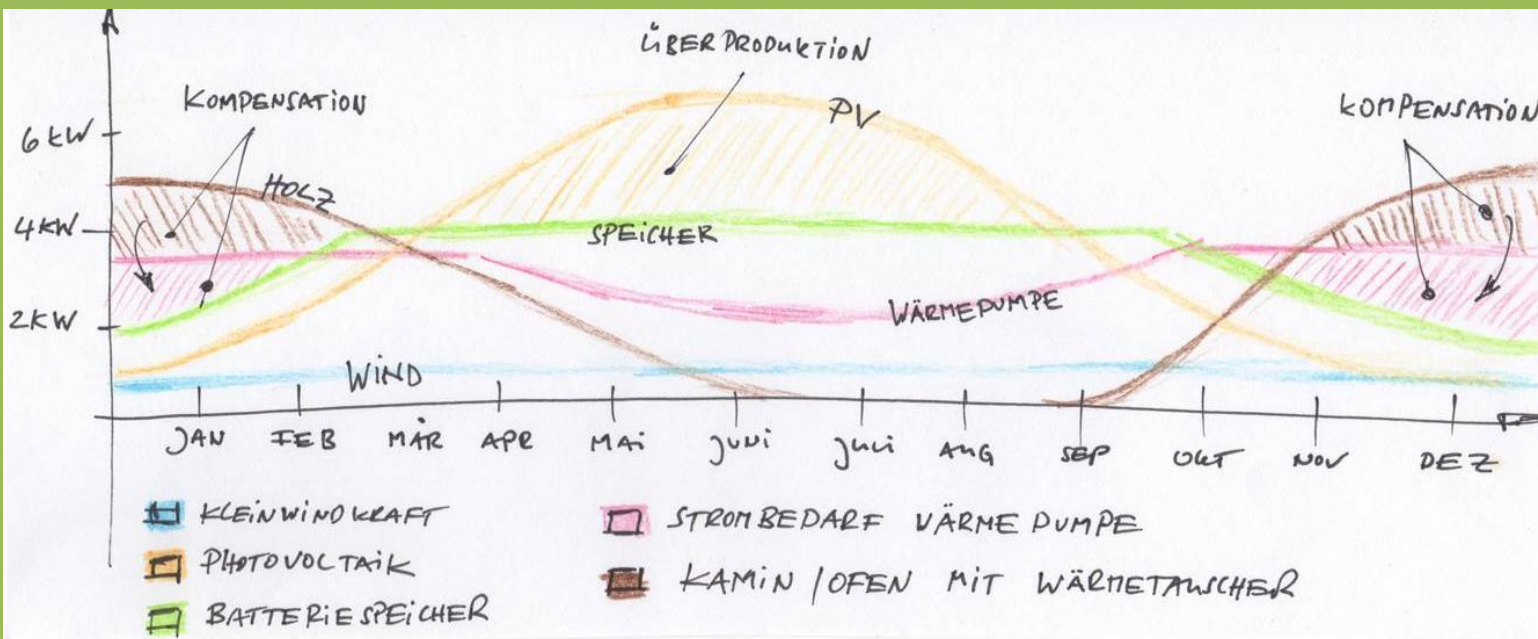 ÜBERPRODUKTION
KOMPENSATION
KOMPENSATION
PV
6 KW
HOLZ
4 KW
SPEICHER
WÄRMEPUMPE
2 KW
WIND
JAN FEB MÄR APR MAI JUNI JULI AUG SEP OKT NOV DEZ
KLEINWINDKRAFT
PHOTOVOLTAIK
BATTERIESPEICHER
STROMBEDARF WÄRMEPUMPE
KAMIN / OFEN MIT WÄRMETAUSCHER